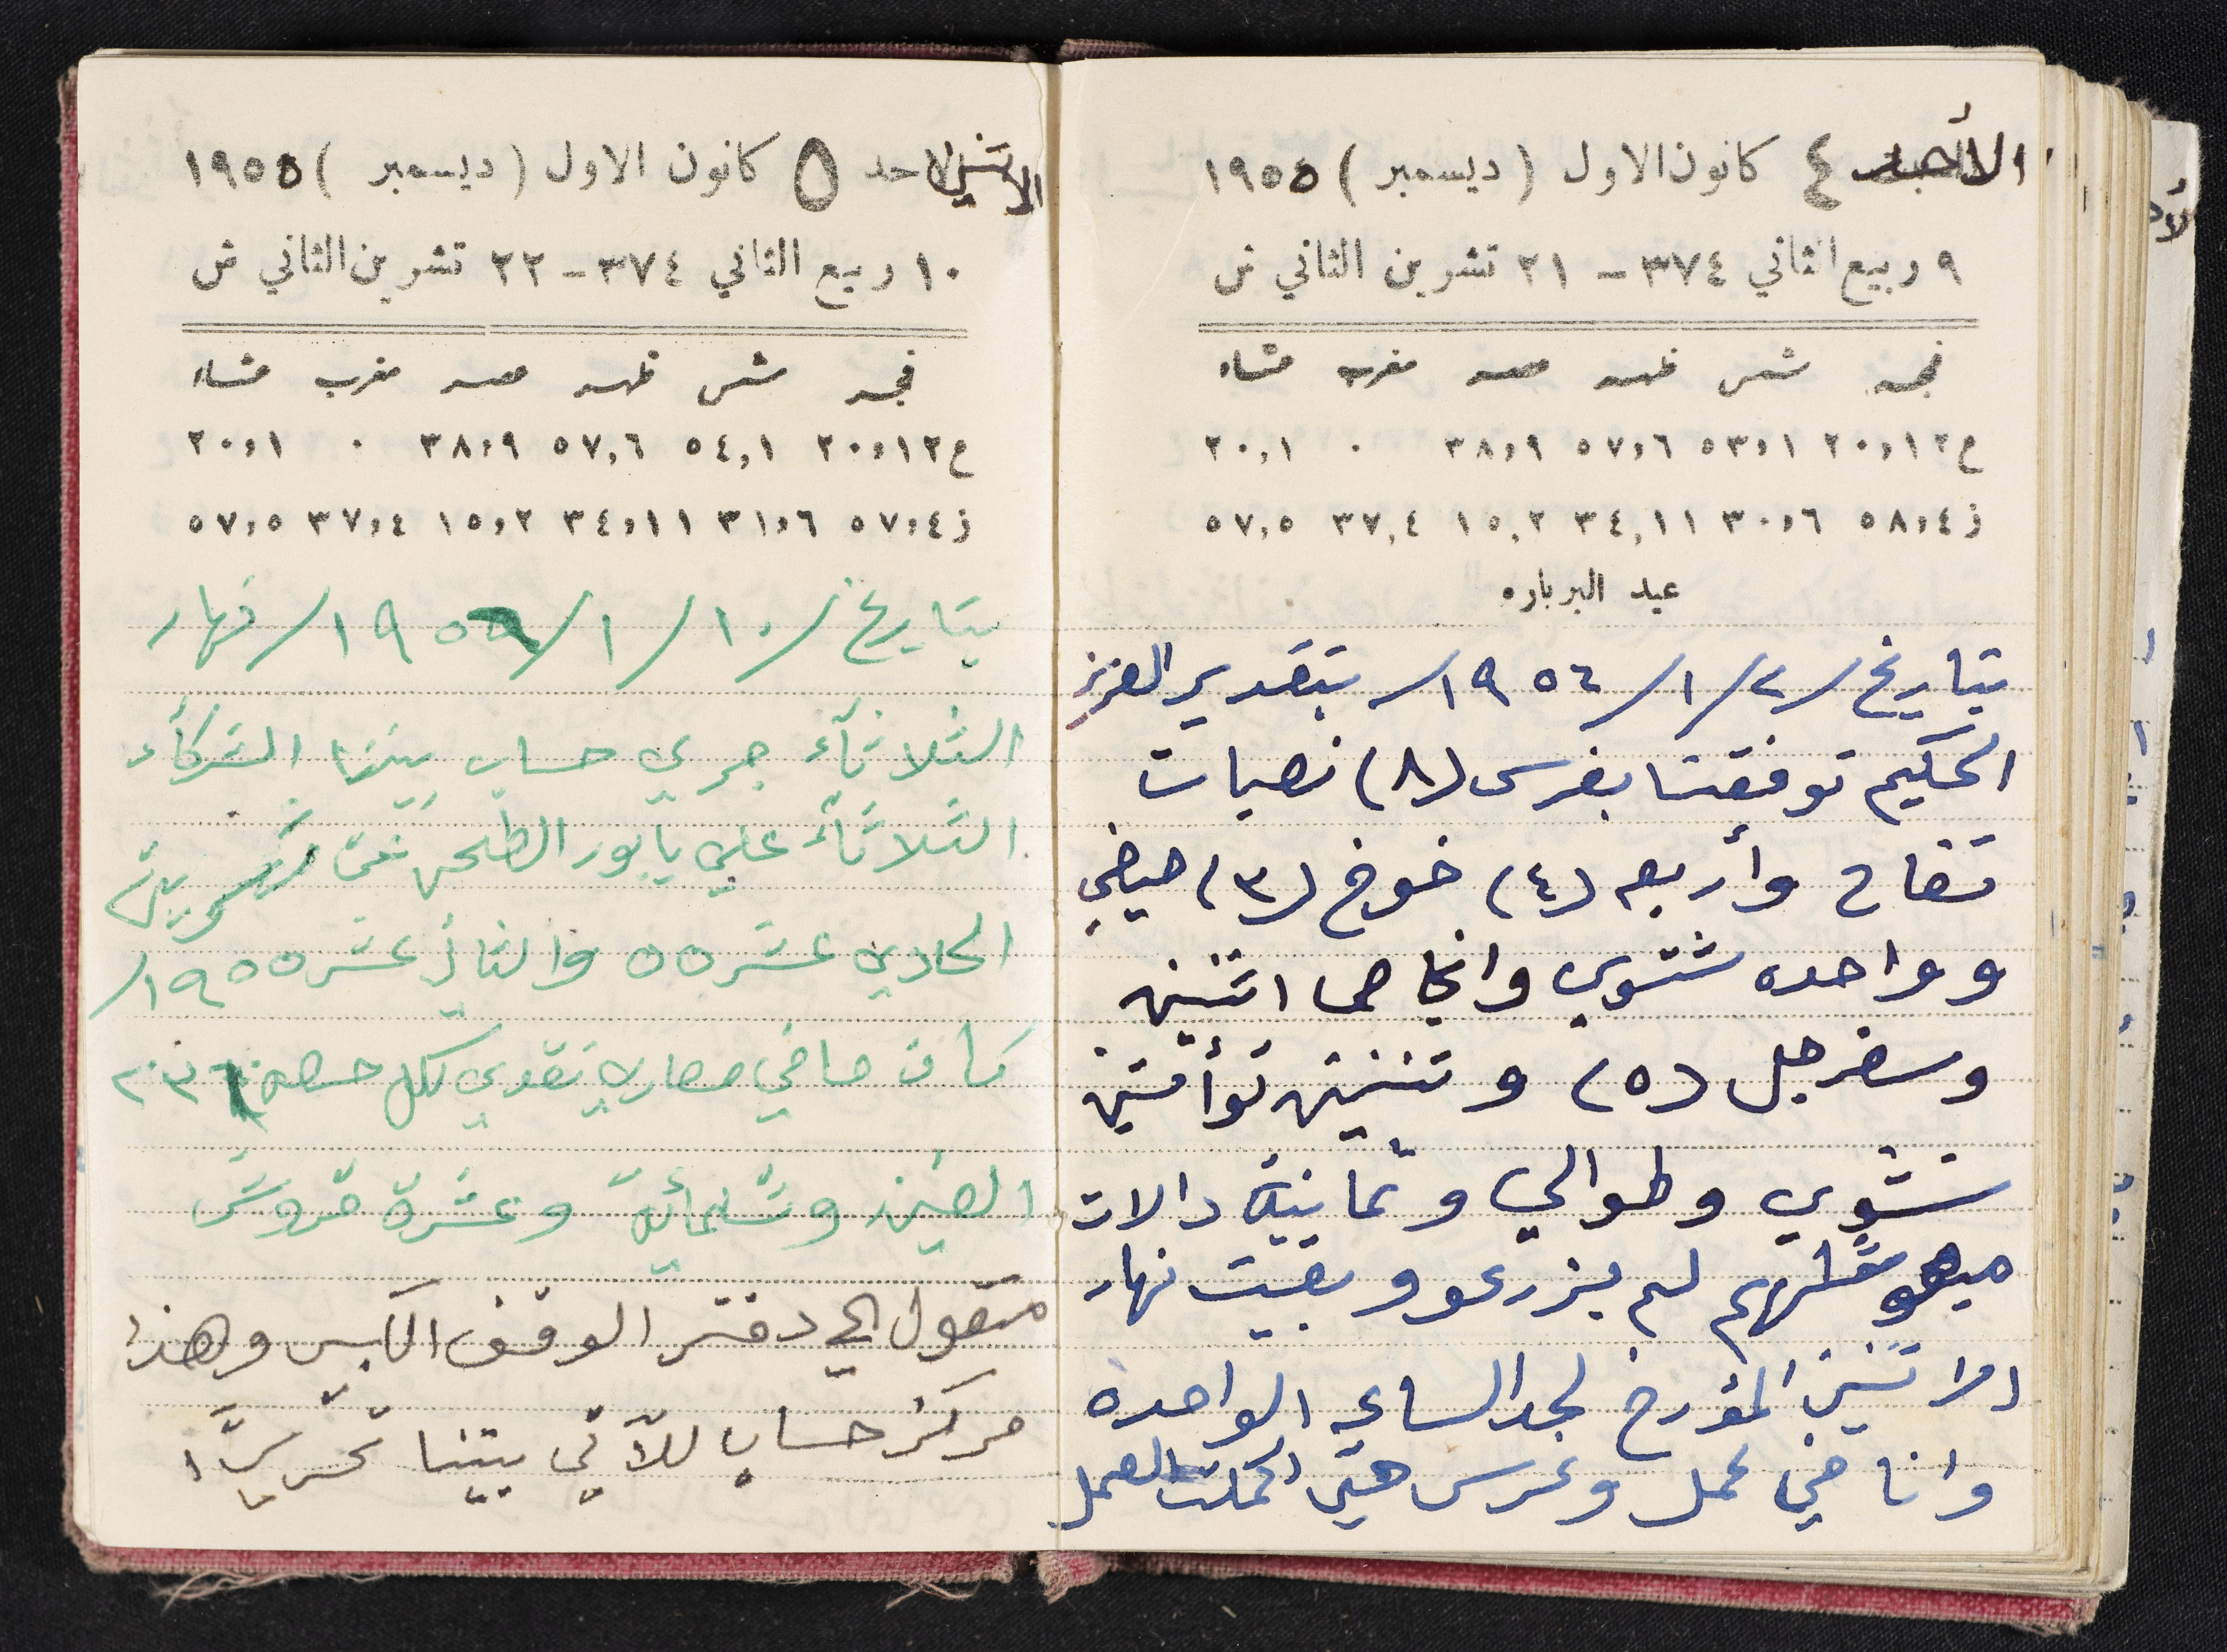 الأحد ٤ كانون الاول (ديسمبر) ١٩٥٥
٩ ربيع الثاني ٣٧٤ – ٢١ تشرين الثاني ش
فجر شمس ظهر عصر مغرب عشاء
ع ٢٠،١٢ ٥٣،١ ٥٧،٦ ٣٨،٩ ٠ ٢٠،١
ز ٥٨،٤ ٣٠،٦ ٣٤،١١ ١٥،٢ ٣٧،٤ ٥٧،٥
عيد البرباره
بتاريخ /٢/ ١/ ١٩٥٦/ بتقدير العزيز
الحكيم توفقنا بغرس (٨) نصبات
تفاح وأربعه (٤) خوخ (٣)
وواحده شتوي وانجاص اتنين
وسفرجل (٥) وتنيتن توأمتين
شتوي وطوالي وثمانية دالات
لم يزرعو وبقيت نهار
الاتنين المؤرخ لحد الساعه الواحده
وانا في عمل وغرس حتى اكملت العمل
الاتنين الاحد ٥ كانون الاول (ديسمبر) ١٩٥٥
١٠ ربيع الثاني ٣٧٤ – ٢٢ تشرين الثاني ش
فجر شمس ظهر عصر مغرب عشاء
ع ٢٠،١٢ ٥٤،١ ٥٧،٦ ٣٨،٩ ٠ ٢٠،١
ز ٥٧،٤ ٣١،٦ ٣٤،١١ ١٥،٢ ٣٧،٤ ٥٧،٥
بتاريخ /١٠/ ١/ ١٩٥٦/ نهار
الثلاثآء جري حساب بيننا الشركآء
الثلاثآء علي بابور الطحن عن شهرين
الحادي عشر ٥٥ والثاني عشر ١٩٥٥/
كان صافي مصاري نقدي لكل حصه ٢٣١٠
الفين وثلمائة وعشرة قروش
منقول الي دفتر الوقف الكبير وهذا
مركز حساب للآتي بيننا تحريرًا